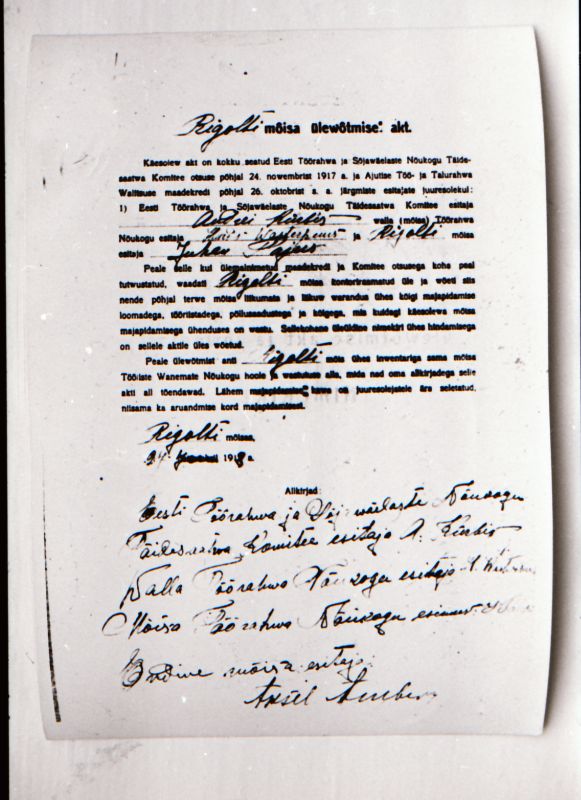 Rigolti mõisa ülewõtmise akt.
Käesolew akt on kokku seatud Eesti Töörahwa ja Sõjawäelaste Nõukogu Täide-
saatwa Komitee otsuse põhjal 24. novembrist 1917 a. ja Ajutise Töö- ja Talurahwa
Walitsuse maadekredi põhjal 26. oktobrist s. a. järgmiste esitajate juuresolekul:
1) Eesti Töörahwa ja Sõjawäelaste Nõukogu Täidesaatwa Komitee esitaja
Andrei Kirbis walla (mõisa) Töörahwa
Nõukogu esitaja ja Rigolti mõisa
esitaja Juhan
Peale selle kui ülemalnimetud maadekredi ja Komitee otsusega koha peal
tutwustatud, waadati Rigolti mõisa kontoriraamatud üle ja wõeti siis
nende põhjal terwe mõisa liikumata ja liikuw warandus ühes kõigi majapidamise
loomadega, tööriistadega, põlluseadustega ja kõigega, mis kuidagi käesolewa mõisa
majapidamisega ühenduses on wastu. Sellekohane üleüldine nimekiri ühes hindamisega
on sellele aktile üles wõetud.
Peale ülewõtmist anti Rigolti mõis ühes inventariga sama mõisa
Tööliste Wanemate Nõukogu hoole ja wastutuse alla, mida nad oma allkirjadega selle
akti all tõendawad. Lähem majapidamise kord on juuresolejatele ära seletatud,
niisama ka aruandmise kord majapidamisest.
Rigolti mõisas,
24. 1918 a.
Allkirjad:
Eesti Töörahwa ja Sõjawäelaste Nõukogu
Täidesaatwa Komitee esitaja A. Kirbis
Walla Töörahwa Nõukogu esitaja
Mõisa Töörahwa Nõukogu esimees
Endine mõisa esitaja:
Aksel